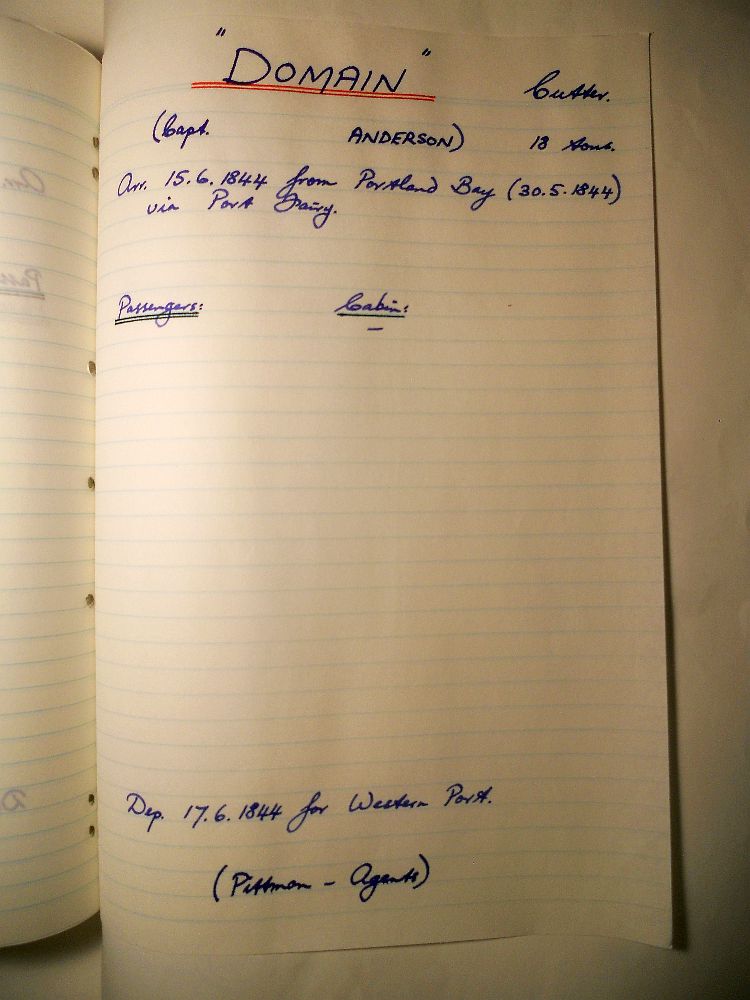 "DOMAIN"
Cutter.
(Capt. ANDERSON) 18 tons.
Arr. 15.6.1844 from Portland Bay (30.5.1844)
via Port Fairy.
Passengers: Cabin:
—
Dep. 17.6.1844 for Western Port.
(Pittman - Agents)